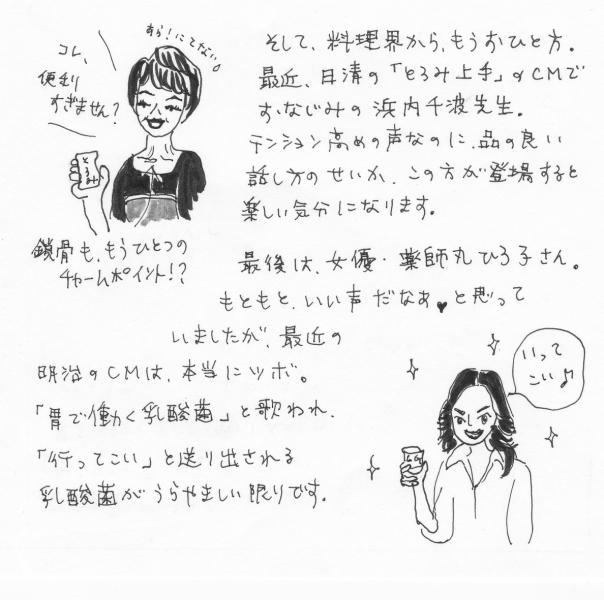 すら!にてない。
コレ、
便利
すぎません?
とろみ
そして、料理界から、もうおひと方。
最近、日清の「とろみ上手」のCMで
おなじみの浜内千波先生。
テンション高めの声なのに、品の良い
話し方のせいか、この方が登場すると
楽しい気分になります。
鎖骨も、もうひとつの
チャームポイント!?
最後は、女優・薬師丸ひろ子さん。
もともと、いい声だなあ♥と思って
いましたが、最近の
明治のCMは、本当にツボ。
「胃で働く乳酸菌」と歌われ、
「行ってこい」と送り出される
乳酸菌がうらやましい限りです。
いって
こい♪